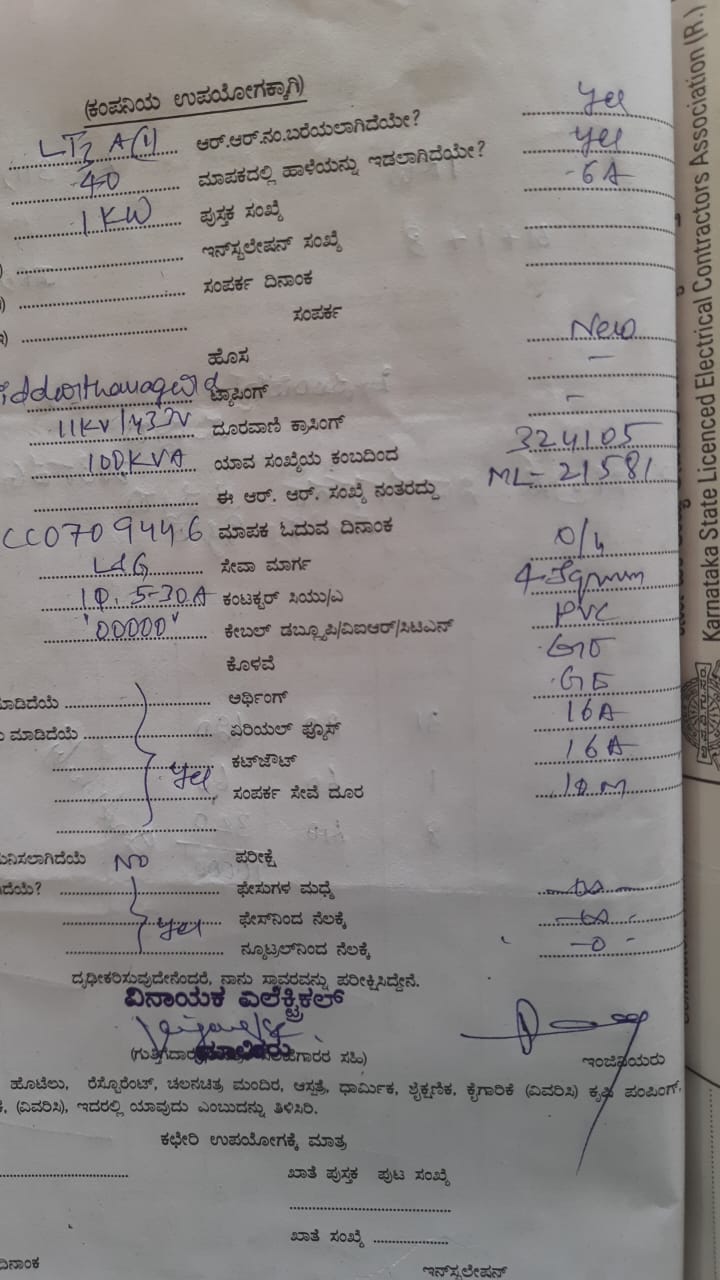 (ಕಂಪನಿಯ ಉಪಯೋಗಕ್ಕಾಗಿ)
LT3 A(1) ಆರ್.ಆರ್.ನಂ.ಬರೆಯಲಾಗಿದೆಯೇ? yes
40 ಮಾಪಕದಲ್ಲಿ ಹಾಳೆಯನ್ನು ಇಡಲಾಗಿದೆಯೇ? yes
1 KW ಪುಸ್ತಕ ಸಂಖ್ಯೆ 6A
ಇನ್‌ಸ್ಟಲೇಷನ್ ಸಂಖ್ಯೆ
ಸಂಪರ್ಕ ದಿನಾಂಕ
ಸಂಪರ್ಕ
ಹೊಸ New
ಟ್ಯಾಪಿಂಗ್ –
11KV/433V ದೂರವಾಣಿ ಕ್ರಾಸಿಂಗ್ –
100KVA ಯಾವ ಸಂಖ್ಯೆಯ ಕಂಬದಿಂದ 324105
ಈ ಆರ್. ಆರ್. ಸಂಖ್ಯೆ ನಂತರದ್ದು ML-21581
CC0709446 ಮಾಪಕ ಓದುವ ದಿನಾಂಕ
L&G ಸೇವಾ ಮಾರ್ಗ O/H
1Φ. 5-30A ಕಂಟಕ್ಟರ್ ಸಿಯು/ಎ 4-Sqmm
"00000" ಕೇಬಲ್ ಡಬ್ಲ್ಯೂಪಿ/ವಿಐಆರ್/ಸಿಟಿಎನ್ PVC
ಕೊಳವೆ GI
ಮಾಡಿದೆಯೆ ಅರ್ಥಿಂಗ್ GI
ಮಾಡಿದೆಯೆ ಏರಿಯಲ್ ಫ್ಯೂಸ್ 16A
yes ಕಟ್‌ಔಟ್ 16A
ಸಂಪರ್ಕ ಸೇವೆ ದೂರ 10 M
ನಿಸಲಾಗಿದೆಯೆ NO ಪರೀಕ್ಷೆ
ದೆಯೆ? ಫೇಸುಗಳ ಮಧ್ಯೆ ∞
yes ಫೇಸ್‌ನಿಂದ ನೆಲಕ್ಕೆ ∞
ನ್ಯೂಟ್ರಲ್‌ನಿಂದ ನೆಲಕ್ಕೆ -0-
ದೃಢೀಕರಿಸುವುದೇನೆಂದರೆ, ನಾನು ಸ್ಥಾವರವನ್ನು ಪರೀಕ್ಷಿಸಿದ್ದೇನೆ.
ವಿನಾಯಕ ಎಲೆಕ್ಟ್ರಿಕಲ್
ಮಾಲೀಕರು
ಸಹಿ) ಇಂಜಿನಿಯರು
ಹೊಟೆಲು, ರೆಸ್ಟೊರೆಂಟ್, ಚಲನಚಿತ್ರ ಮಂದಿರ, ಆಸ್ಪತ್ರೆ, ಧಾರ್ಮಿಕ, ಶೈಕ್ಷಣಿಕ, ಕೈಗಾರಿಕೆ (ವಿವರಿಸಿ) ಕೃಷಿ ಪಂಪಿಂಗ್
(ವಿವರಿಸಿ), ಇದರಲ್ಲಿ ಯಾವುದು ಎಂಬುದನ್ನು ತಿಳಿಸಿರಿ.
ಕಛೇರಿ ಉಪಯೋಗಕ್ಕೆ ಮಾತ್ರ
ಖಾತೆ ಪುಸ್ತಕ ಪುಟ ಸಂಖ್ಯೆ
ಖಾತೆ ಸಂಖ್ಯೆ
ದಿನಾಂಕ ಇನ್‌ಸ್ಟಲೇಷನ್
Karnataka State Licenced Electrical Contractors Association (R.)